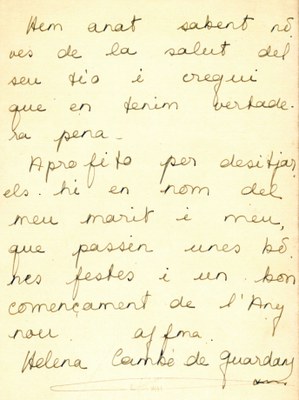 Hem anat sabent nò
ves de la salut del
seu tío i cregui
que en tenim vertade-
ra pena.
Aprofito per desitjar,
els-hi en nom del
meu marit i meu,
que passin unes bò
nes festes i un bon
començament de l'Any
nou. affma.
Helena Cambó de Guardans